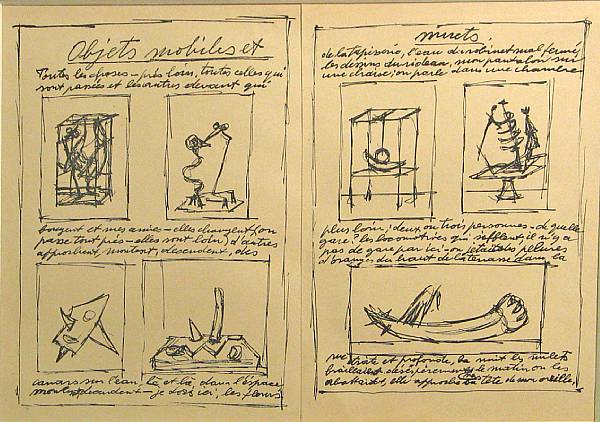 Objets mobiles et
Toutes les choses – près, loin, toutes celles qui
sont passées et les autres devant qui
bougent et mes amies – elles changent (on
passe tout près – elles sont loin) d'autres
approchent, montent, descendent, des
canards sur l'eau, là et là, dans l'espace
montent descendent – je dors ici, les fleurs
muets.
de la tapisserie, l'eau du robinet mal fermé,
les dessins du rideau, mon pantalon sur
une chaise; on parle dans une chambre
plus loin; deux ou trois personnes – de quelle
gare? les locomotives qui sifflent, il n'y a
pas de gare par ici – on jetait des pelures
d'oranges du haut de la terrasse dans la
rue étroite et profonde, la nuit les mulets
braillaient désespérément le matin on les
abattait, elle approche sa tête de mon oreille,